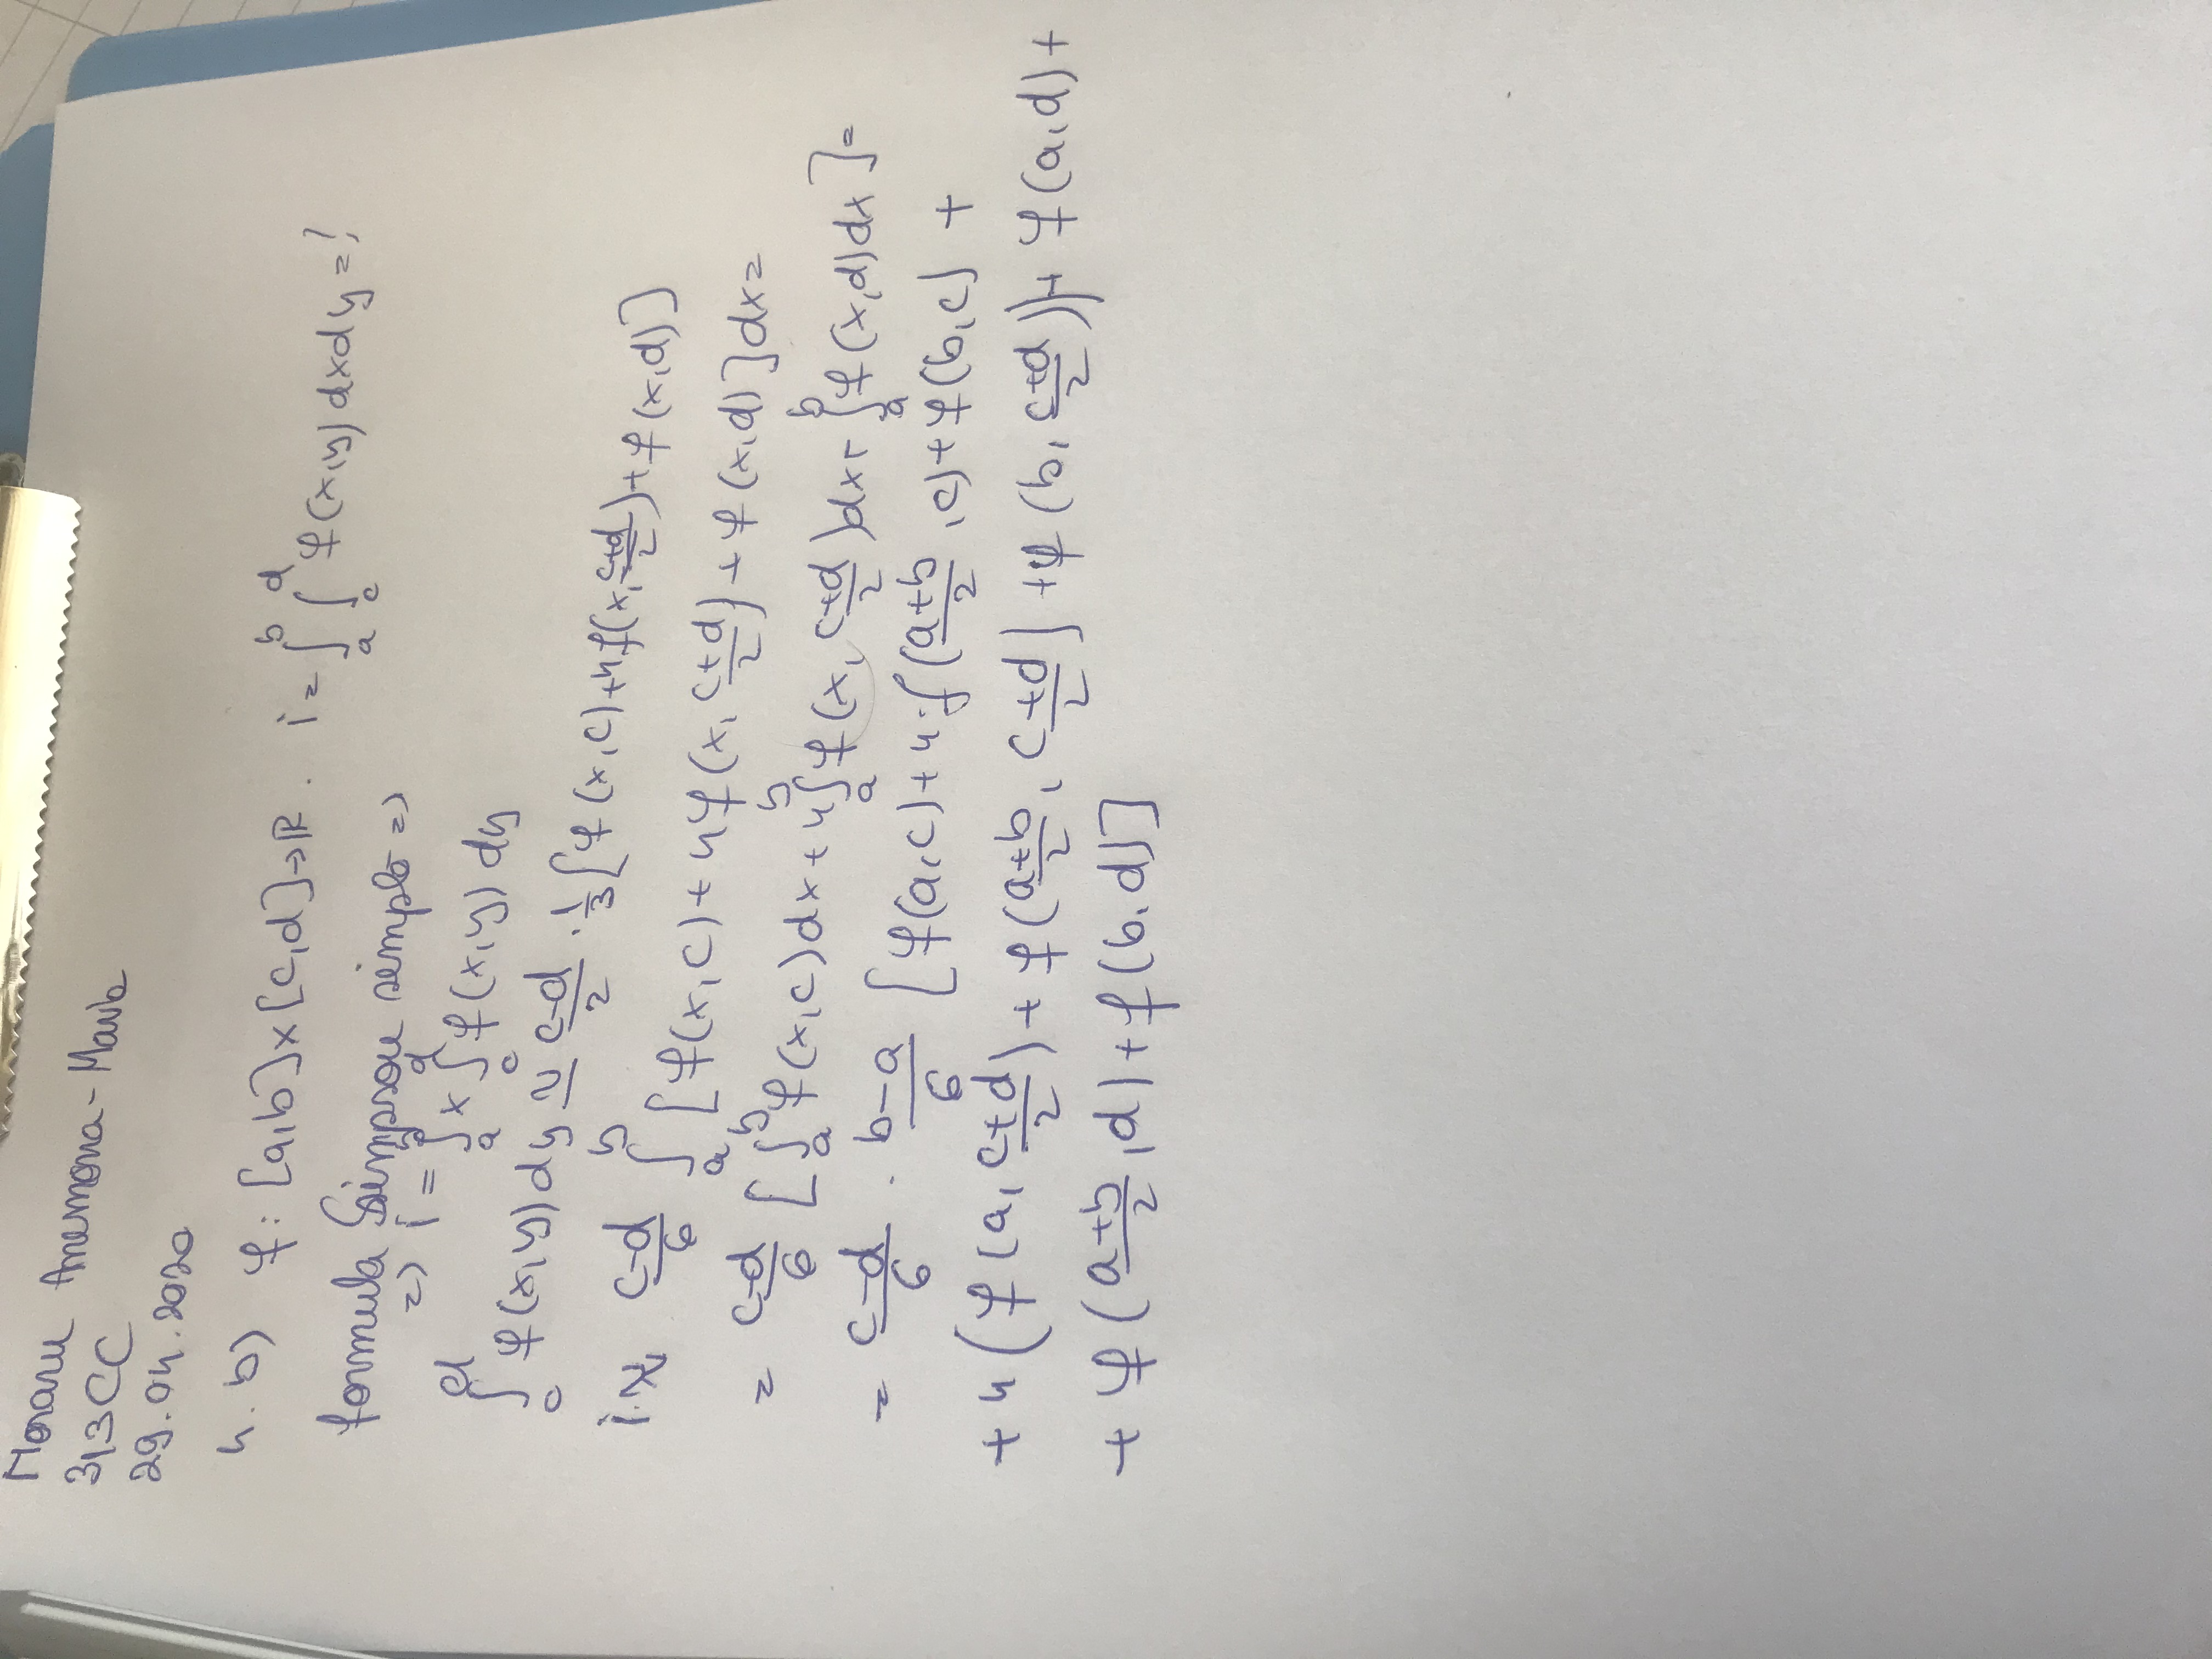 Moraru Anemona-Maria
313CC
29.04.2020
4. b) f: [a,b]×[c,d]→ℝ. i = ∫_a^b ∫_c^d f(x,y) dx dy = ?
formula Simpson simplă =>
=> i = ∫_a^b x ∫_c^d f(x,y) dy
∫_c^d f(x,y) dy ≃ (c-d)/2 · 1/3 [f(x,c)+4f(x,(c+d)/2)+f(x,d)]
i ≈ (c-d)/6 ∫_a^b [f(x,c)+4f(x,(c+d)/2)+f(x,d)] dx =
= (c-d)/6 [∫_a^b f(x,c)dx+4∫_a^b f(x,(c+d)/2)dx+∫_a^b f(x,d)dx] =
= (c-d)/6 · (b-a)/6 [f(a,c)+4·f((a+b)/2,c)+f(b,c) +
+ 4(f(a,(c+d)/2)+f((a+b)/2,(c+d)/2)+f(b,(c+d)/2))+f(a,d)+
+ f((a+b)/2,d)+f(b,d)]